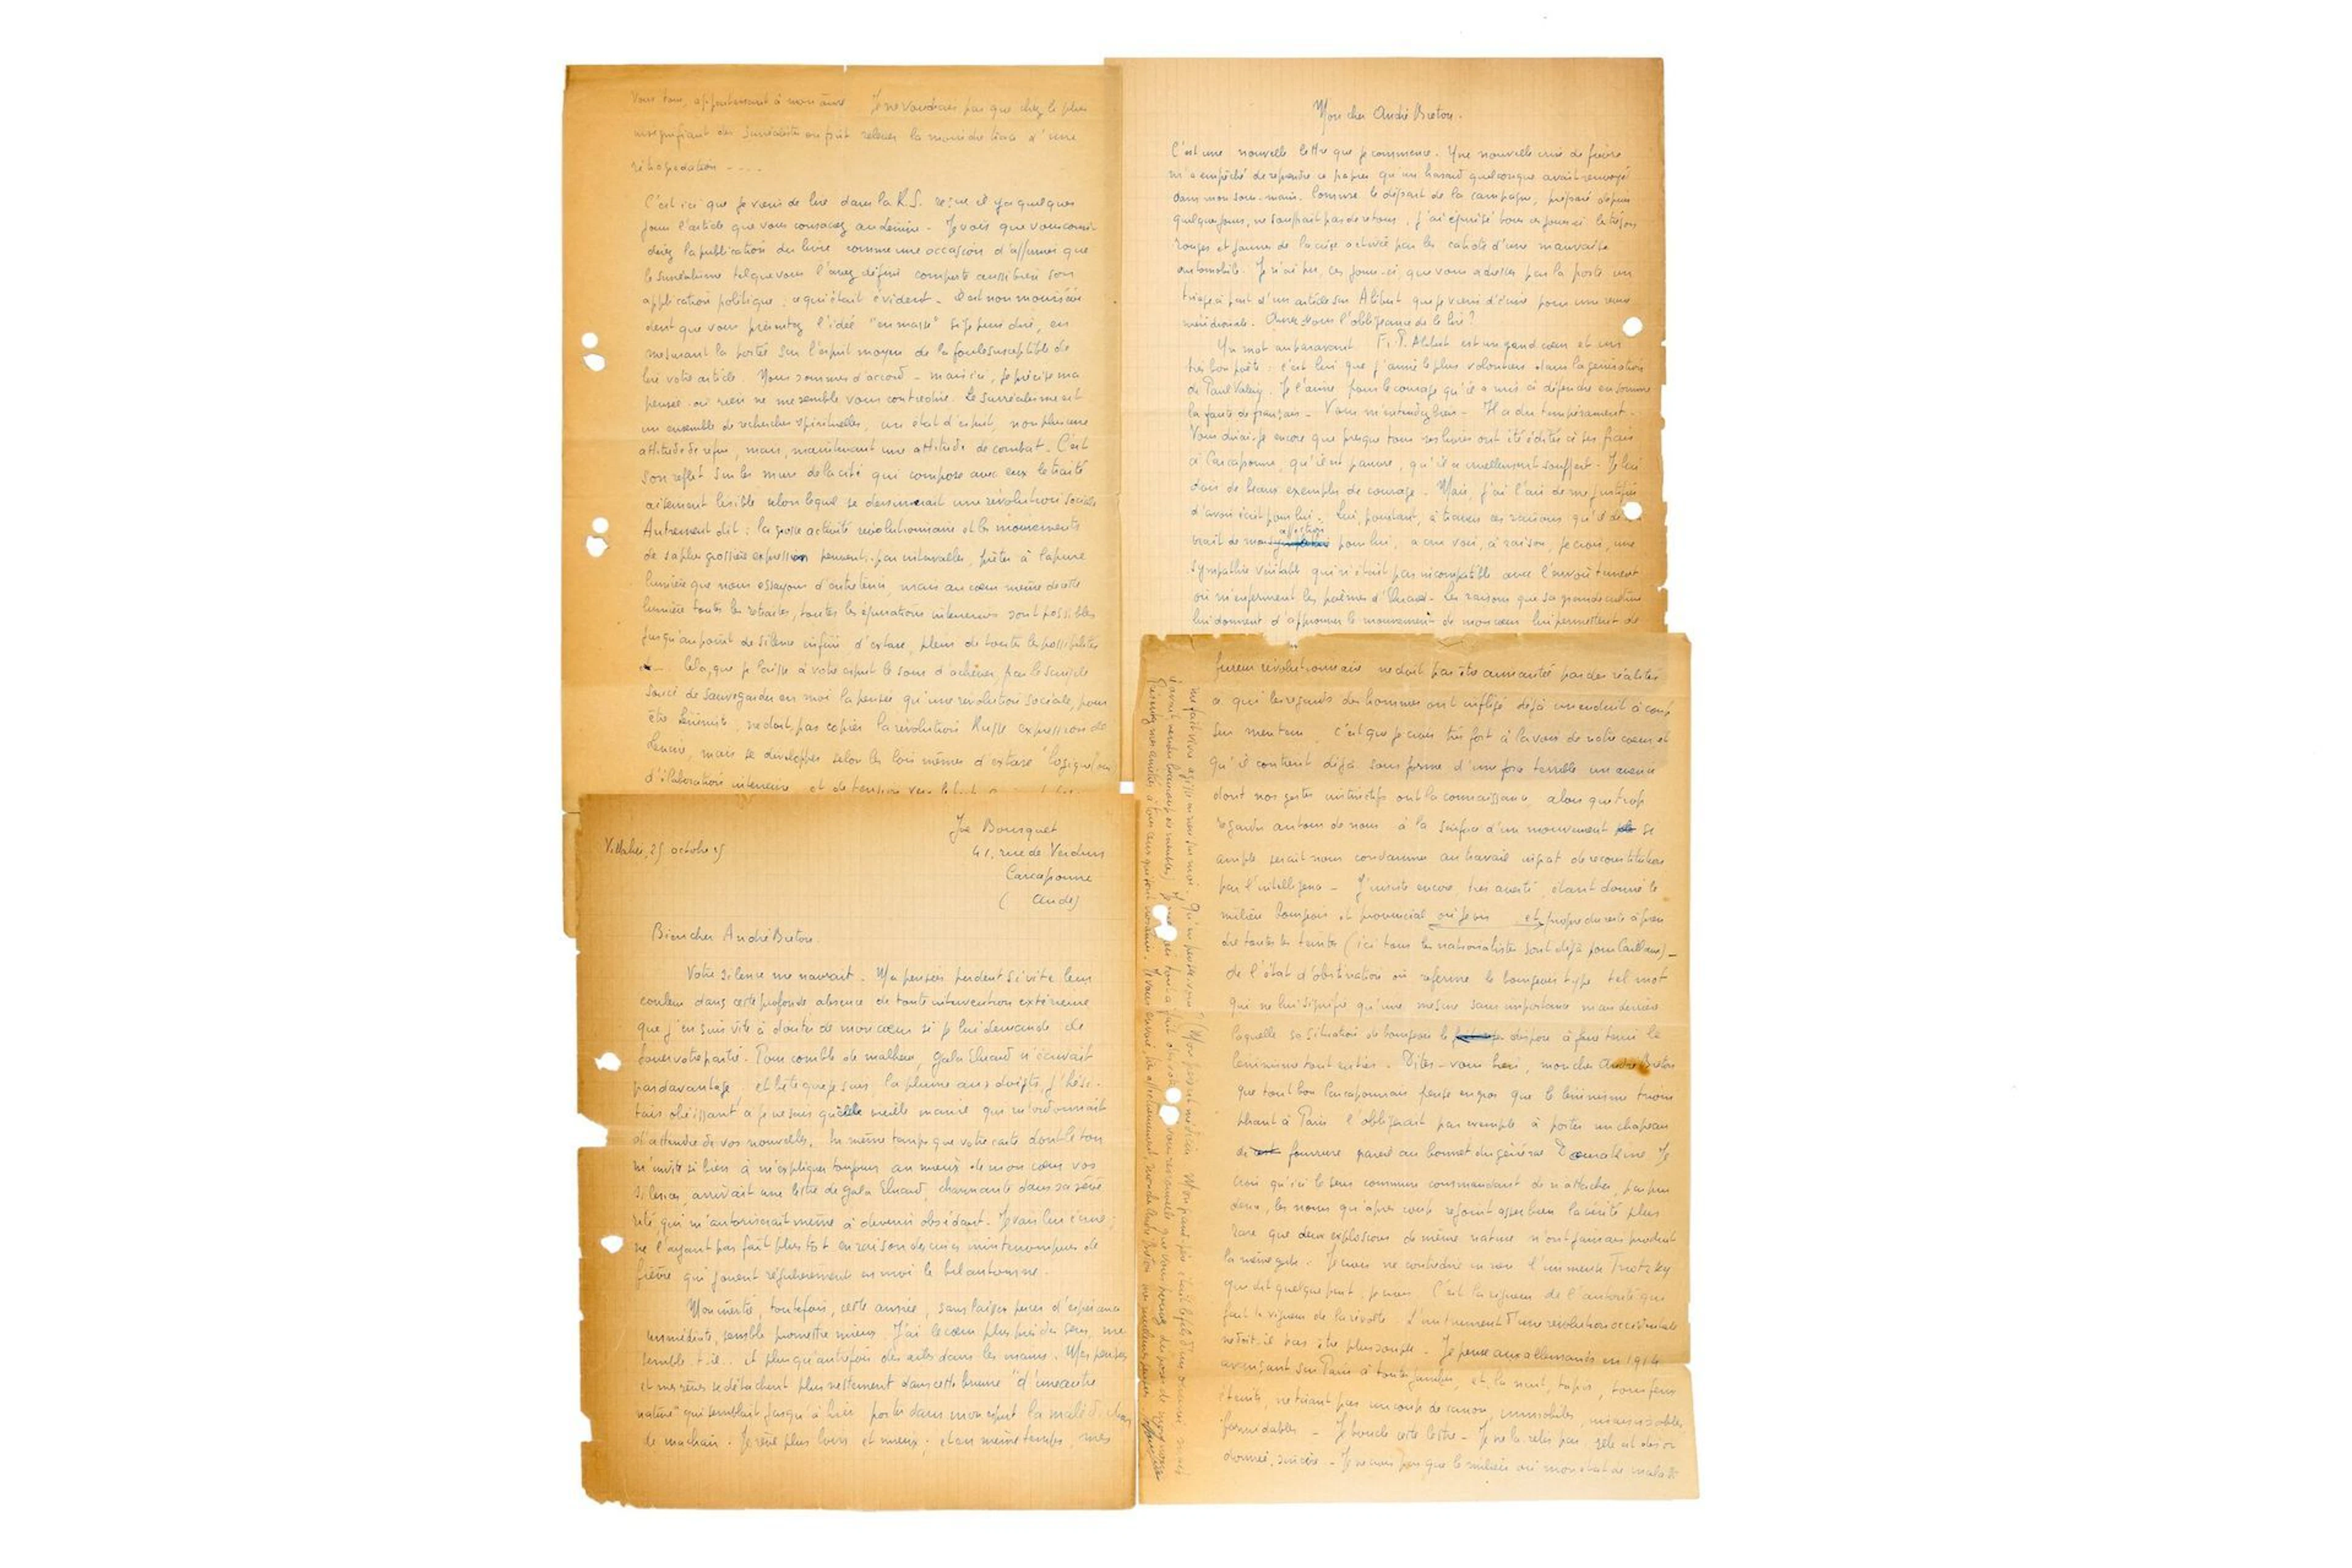 Vous tous, appartenant à mon âme Je ne voudrais pas que chez le plus
insignifiant des surréalistes on pût relever la moindre trace d'une
rétrogradation ----
C'est ici que je viens de lire dans la R.S. reçue il y a quelques
jours l'article que vous consacrez au Lénine. Je vois que vous
la publication du livre comme une occasion d'affirmer que
le surréalisme tel que vous l'avez défini comporte aussi bien son
application politique : ce qui était évident. Il est non moins évi-
dent que vous présentez l'idée "en masse" si je puis dire, en
mesurant la portée sur l'esprit moyen de la foule susceptible de
lire votre article. Nous sommes d'accord - mais ici, je précise ma
pensée où rien ne me semble vous contredire. Le surréalisme est
un ensemble de recherches spirituelles, un état d'esprit, non plus une
attitude de refus, mais, maintenant une attitude de combat. C'est
son reflet sur les murs de la cité qui compose avec eux le traité
aisément lisible selon lequel se dessinerait une révolution sociale
Autrement dit : la grosse activité révolutionnaire et les mouvements
de sa plus grossière expression peuvent, par intervalles, prêter à la pure
lumière que nous essayons d'entretenir, mais au cœur même de cette
lumière toutes les retraites, toutes les épurations intérieures sont possibles
jusqu'au point de silence infini, d'extase, plein de toutes les possibilités
Cela, que je laisse à votre esprit le soin d'achever, par le simple
souci de sauvegarder en moi la pensée qu'une révolution sociale, pour
être Léniniste, ne doit pas copier la révolution Russe expression de
Lénine, mais se développer selon les lois mêmes d'extase
d'élaboration intérieure et de tension vers
Mon cher André Breton.
C'est une nouvelle lettre que je commence. Une nouvelle crise de fièvre
m'a empêché de reprendre ce papier qu'un hasard quelconque avait renvoyé
dans mon sous-main. Comme le départ de la campagne, préparé depuis
quelques jours, ne souffrait pas de retour, j'ai épuisé tous ces jours-ci les trésors
rouges et jaunes de la crise activée par les cahots d'une mauvaise
automobile. Je n'ai pu, ces jours-ci, que vous adresser par la poste un
tirage à part d'un article sur Alibert que je viens d'écrire pour une revue
méridionale. Aurez-vous l'obligeance de le lire ?
Un mot auparavant F.P. Alibert est un grand cœur et un
très bon poète : c'est lui que j'aime le plus volontiers dans la génération
de Paul Valéry. Je l'aime pour le courage qu'il a mis à défendre en somme
la faute de français - Vous m'entendez bien - Il a du tempérament.
Vous dirai-je encore que presque tous ses livres ont été édités à ses frais
à Carcassonne, qu'il est pauvre, qu'il a cruellement souffert. Je lui
dois de beaux exemples de courage. Mais, j'ai l'air de me justifier
d'avoir écrit pour lui. Lui, pourtant, à travers ces raisons qu'il
affection
pour lui, a cru voir, à raison, je crois, une
sympathie véritable qui n'était pas incompatible avec l'envoûtement
où m'enferment les poèmes d'Eluard. Les raisons que sa grande culture
lui donnent d'approuver le mouvement de mon cœur lui permettent de
Joe Bousquet
Villalier, 25 octobre 25
41, rue de Verdun
Carcassonne
(Aude)
Bien cher André Breton.
Votre silence me navrait. Mes pensées perdent si vite leur
couleur dans cette profonde absence de toute intervention extérieure
que j'en suis vite à douter de mon cœur si je lui demande de
jouer votre partie. Pour comble de malheur, Gala Eluard n'écrivait
pas davantage, et bête que je suis, la plume aux doigts, j'hési-
tais obéissant à je ne sais quelle vieille manie qui m'ordonnait
d'attendre de vos nouvelles. En même temps que votre carte dont le ton
m'invite si bien à m'expliquer toujours au mieux de mon cœur vos
silences, arrivait une lettre de Gala Eluard, charmante dans sa sévé-
rité, qui m'autoriserait même à devenir obsédant. Je vais lui écrire ;
ne l'ayant pas fait plus tôt en raison des crises ininterrompues de
fièvre qui jouent régulièrement en moi le bel automne.
Mon inertie, toutefois, cette année, sans laisser percer d'espérance
immédiate, semble promettre mieux. J'ai le cœur plus près des sens, me
semble-t-il, et plus qu'autrefois des ailes dans les mains. Mes pensées
et mes rêves se détachent plus nettement dans cette brume "d'une autre
nature" qui semblait jusqu'à hier porter dans mon esprit la malédiction
de ma chair. Je rêve plus loin et mieux ; et en même temps, mes
fureur révolutionnaire ne doit pas être aimantée par des réalités
à qui les regards des hommes ont infligé déjà un enduit à coup
sûr menteur, c'est que je crois très fort à la voix de notre cœur, et
qu'il contient déjà sous forme d'une force terrible un avenir
dont nos gestes instinctifs ont la connaissance, alors que trop
regarder autour de nous à la surface d'un mouvement si
ample serait nous condamner au travail ingrat de reconstitution
par l'intelligence - J'insiste encore, très averti, étant donné le
milieu bourgeois et provincial où je vis et propre du reste à pren-
dre toutes les teintes (ici tous les nationalistes sont déjà pour Caillaux) -
de l'état d'obstination où referme le bourgeois type tel mot
qui ne lui signifie qu'une mesure sans importance mais derrière
laquelle sa situation de bourgeois le dispose à faire tenir le
léninisme tout entier. Dites-vous bien, mon cher André Breton
que tout bon Carcassonnais pense en gros que le léninisme triom-
phant à Paris l'obligerait par exemple à porter un chapeau
de fourrure pareil au bonnet du général Dourakine. Je
crois qu'ici le sens commun commandant de n'attacher, pas plus
deux, les noms qu'après coup rejoint assez bien la vérité plus
rare que deux explosions de même nature n'ont jamais produit
la même gerbe. Je crois ne contredire en rien l'immense Trotzky
qui dit quelque part, je crois, C'est la rigueur de l'autorité qui
fait la vigueur de la révolte. L'instrument d'une révolution occidentale
ne doit-il pas être plus souple. Je pense aux allemands en 1914
avançant sur Paris à toutes jambes, et, la nuit, tapis, tous feux
éteints, ne tirant pas un coup de canon, immobiles, insaisissables
formidables - Je boucle cette lettre - Je ne la relis pas, elle est désor-
donnée, sincère. - Je ne crois pas que le milieu où mon état de malade
me fait vivre agisse en rien sur moi. Qu'en pensez-vous ?